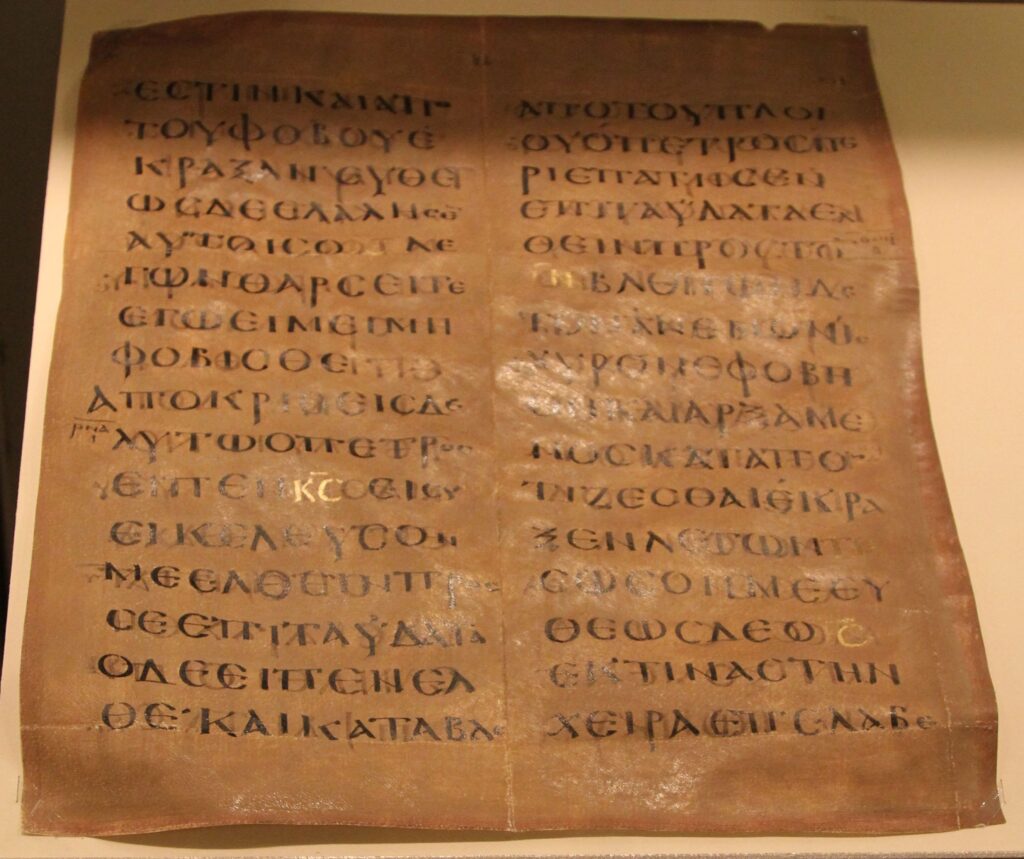 ΕCΤΙΝΚΑΙΑΠΟ
ΤΟΥΦΟΒΟΥΕ
ΚΡΑΞΑΝΕΥΘΕ
ΩCΔΕΕΛΑΛΗCΕ
ΑΥΤΟΙCΟΙCΛΕ
ΓΩΝΘΑΡCΕΙΤΕ
ΕΓΩΕΙΜΕΙΜΗ
ΦΟΒΙCΘΕ
ΑΠΟΚΡΙΘΕΙCΔΕ
ΑΥΤΩΟΠΕΤΡΟC
ΕΙΠΕΝΚ̅C̅ΕΙCΥ
ΕΙΚΕΛΕΥCΟΝ
ΜΕΕΛΘΕΙΝΠΡΟC
CΕΕΠΙΤΑΫΔΑΤΑ
ΟΔΕΕΙΠΕΝΕΛ
ΘΕ·ΚΑΙΚΑΤΑΒΑC
ΑΠΟΤΟΥΠΛΟΙ
ΟΥΟΠΕΤΡΟCΠΕ
ΡΙΕΠΑΤΗCΕΝ
ΕΠΙΤΑΫΔΑΤΑΕΛ
ΘΕΙΝΠΡΟCΤΟΝ
ΙΝΒΛΕΠΩΝΔΕ
ΤΟΝΑΝΕΜΟΝΙ
CΧΥΡΟΝΕΦΟΒΗ
ΘΗΚΑΙΑΡΞΑΜΕ
ΝΟCΚΑΤΑΠΟ
ΤΙΖΕCΘΑΙΕΚΡΑ
ΞΕΝΛΕΓΩΝ
ΚΕCΩCΟΝΜΕΕΥ
ΘΕΩCΔΕΟΙC
ΕΚΤΙΝΑCΤΗΝ
ΧΕΙΡΑΕΠΕΛΑΒΕ